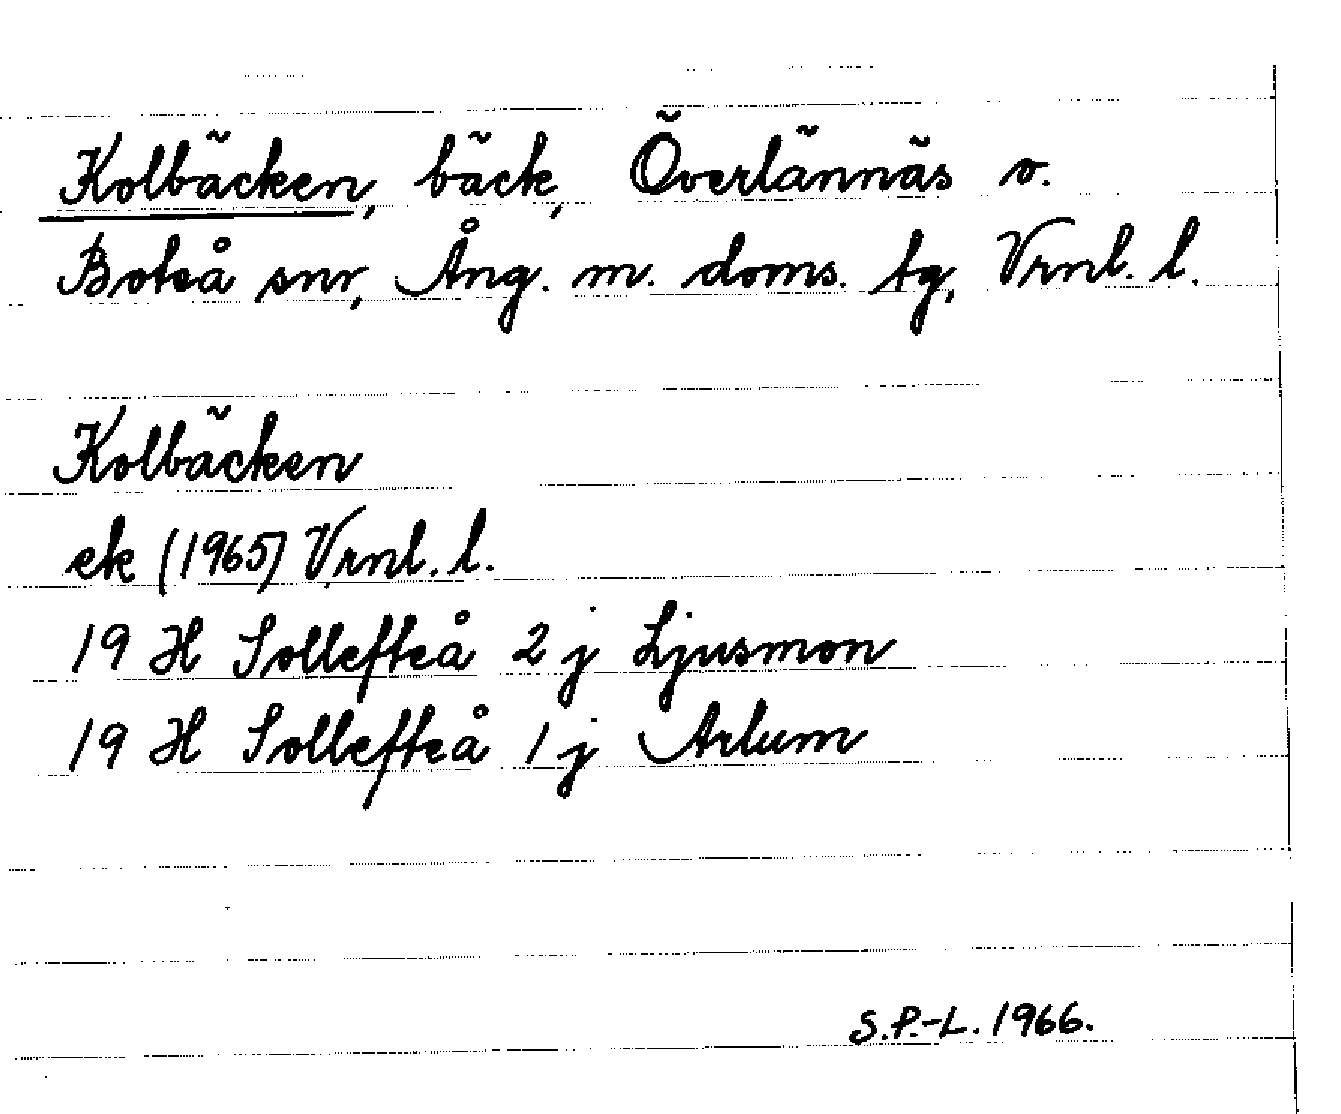 Kolbäcken, bäck, Överlännäs o.
Boteå snr, Ång. m. doms. tg, Vrnl. l.
Kolbäcken
ek (1965) Vrnl. l.
19 H Sollefteå 2 j Ljusmon
19 H Sollefteå 1 j Arlum
S.P.-L. 1966.